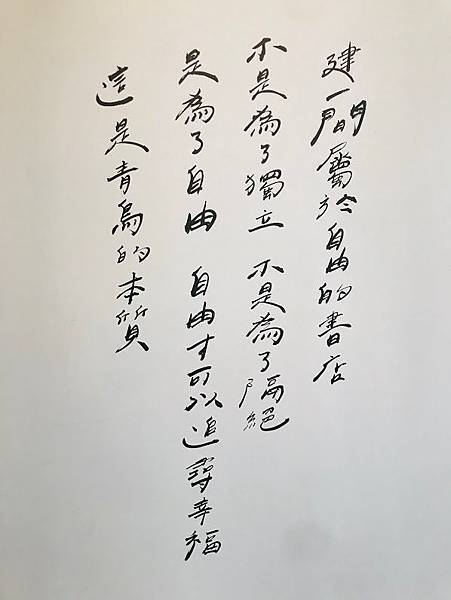 建一間屬於自由的書店
不是為了獨立 不是為了隔絕
是為了自由 自由才可以追尋幸福
這是青鳥的本質